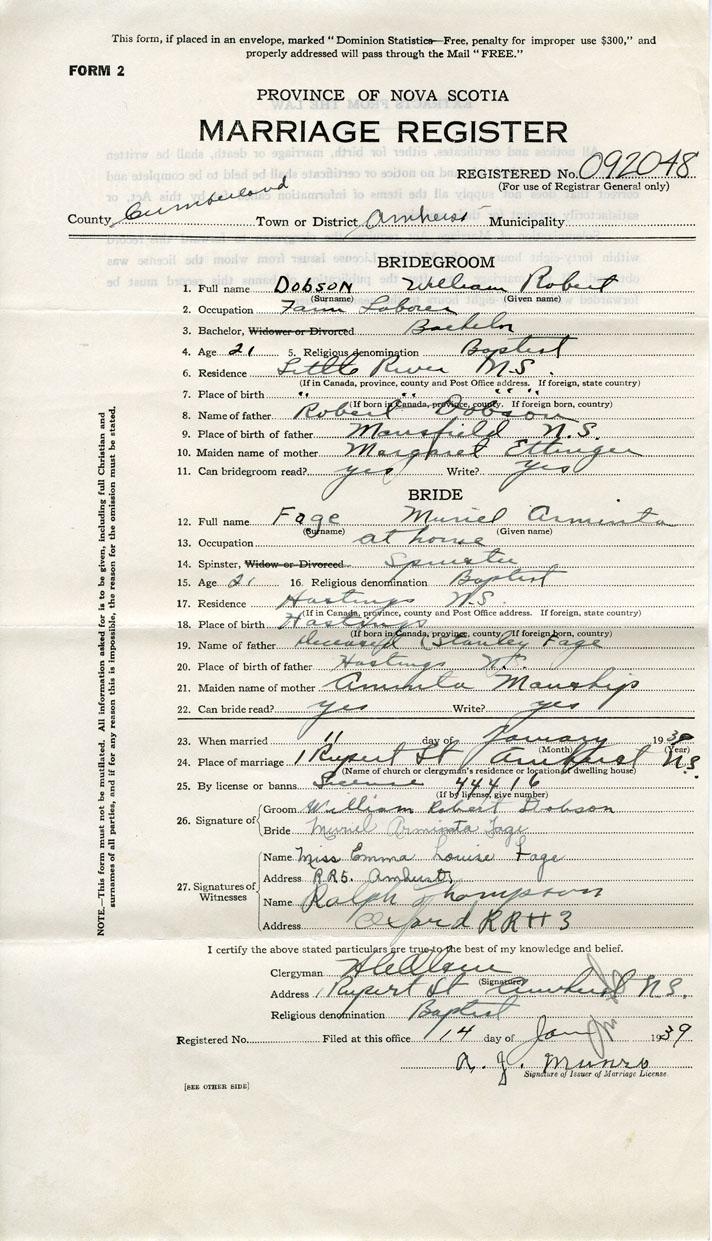 This form, if placed in an envelope, marked "Dominion Statistics—Free, penalty for improper use $300," and
properly addressed will pass through the Mail "FREE."
FORM 2
PROVINCE OF NOVA SCOTIA
MARRIAGE REGISTER
REGISTERED No. 092048
(For use of Registrar General only)
County Cumberland Town or District Amherst Municipality
BRIDEGROOM
1. Full name Dobson William Robert
(Surname) (Given name)
2. Occupation Farm Laborer
3. Bachelor, Widower or Divorced Bachelor
4. Age 21 5. Religious denomination Baptist
6. Residence Little River N.S.
(If in Canada, province, county and Post Office address. If foreign, state country)
7. Place of birth " " " "
(If born in Canada, province, county. If foreign born, country)
8. Name of father Robert Dobson
9. Place of birth of father Mansfield N.S.
10. Maiden name of mother Margaret Ettinger
11. Can bridegroom read? yes Write? yes
BRIDE
12. Full name Fage Muriel Arminta
(Surname) (Given name)
13. Occupation at home
14. Spinster, Widow or Divorced Spinster
15. Age 21 16. Religious denomination Baptist
17. Residence Hastings N.S
(If in Canada, province, county and Post Office address. If foreign, state country)
18. Place of birth Hastings
(If born in Canada, province, county. If foreign born, country)
19. Name of father Deceased (Stanley Fage
20. Place of birth of father Hastings N.S.
21. Maiden name of mother Aminta Manship
22. Can bride read? yes Write? yes
23. When married 11 day of January 1939
(Month) (Year)
24. Place of marriage 1 Rupert St Amherst N.S.
(Name of church or clergyman's residence or location of dwelling house)
25. By license or banns License 44416
(If by license, give number)
26. Signature of Groom William Robert Dobson
Bride Muriel Arminta Fage
27. Signatures of Witnesses
Name Miss Emma Louise Fage
Address RR5. Amherst
Name Ralph Thompson
Address Oxford RR#3
I certify the above stated particulars are true to the best of my knowledge and belief.
Clergyman
(Signature)
Address 1 Rupert St Amherst N.S.
Religious denomination Baptist
Registered No. Filed at this office 14 day of Jan 1939
A. J. Munro
Signature of Issuer of Marriage License.
[SEE OTHER SIDE]
NOTE.—This form must not be mutilated. All information asked for is to be given, including full Christian and
surnames of all parties, and if for any reason this is impossible, the reason for the omission must be stated.